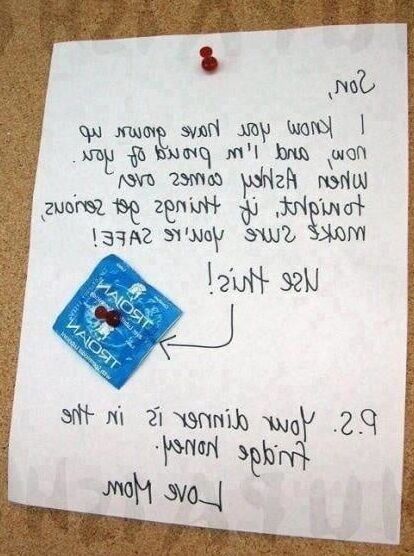 Son,
I know you have grown up
now, and I'm proud of you.
when Ashley comes over
tonight, if things get serious,
make sure you're SAFE!
Use this!
TROJAN
TROJAN
P.S. Your dinner is in the
fridge honey.
Love Mom